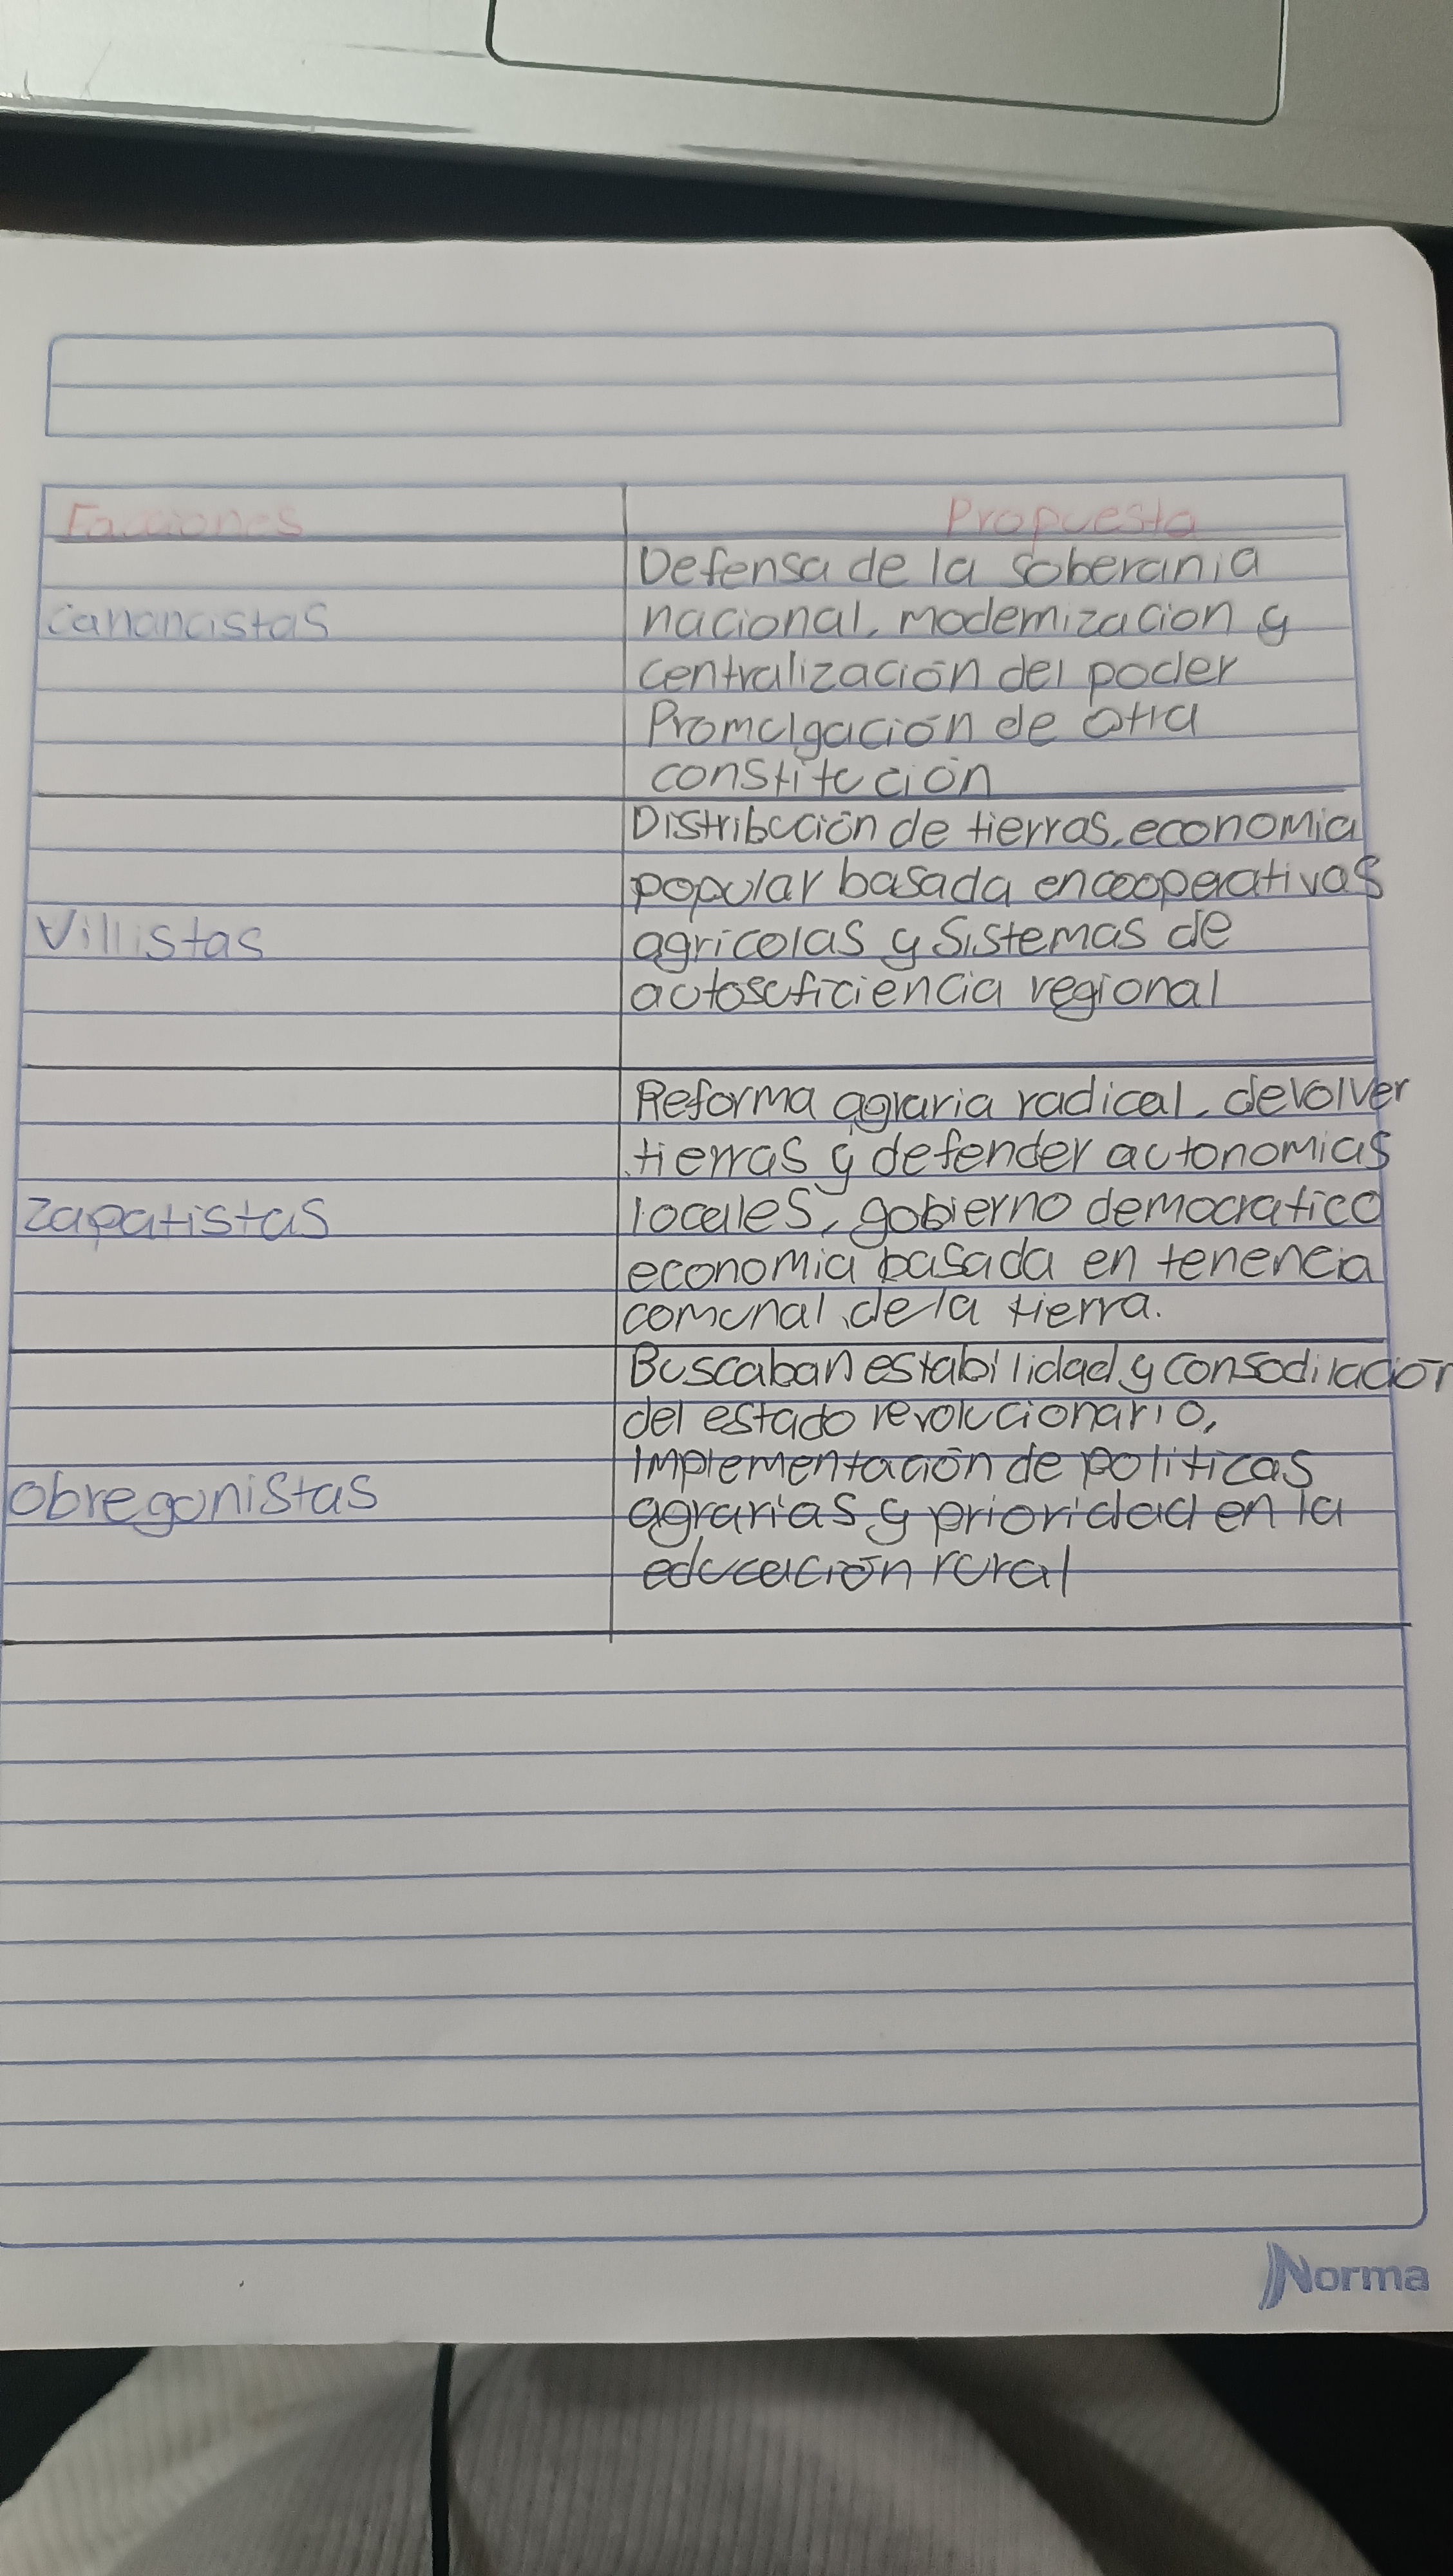 Facciones
Propuesta
Defensa de la soberania
Carrancistas
nacional, modernizacion y
centralización del poder
Promulgación de otra
constitución
Distribución de tierras, economia
popular basada en cooperativas
Villistas
agricolas y sistemas de
autosuficiencia regional
Reforma agraria radical, devolver
tierras y defender autonomias
Zapatistas
locales, gobierno democratico
economia basada en tenencia
comunal de la tierra.
Buscaban estabilidad y consodilación
del estado revolucionario,
Implementación de politicas
Obregonistas
agrarias y prioridad en la
educación rural
Norma